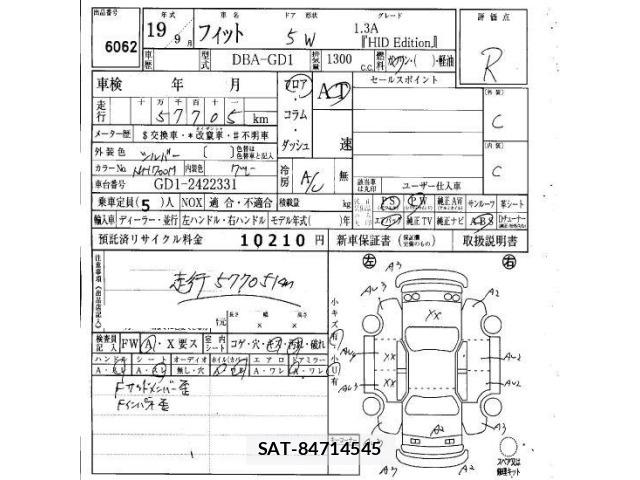 出品番号 6062
年式 19年9月 車名 フィット ドア 形状 5 W グレード 1.3A『HID Edition』
評価点 R
車歴 型式 DBA-GD1 排気量 1300 c.c. 燃料 ガソリン・( )・軽油
車検 年 月 フロア・コラム・ダッシュ AT 速 セールスポイント
走行 十万千百十一
57705 km
外装 C
内装 C
メーター歴 $交換車・*改竄車・#不明車
外装色 シルバー [ ] 色替は色替車と記入
カラーNo NH700M 内装色 グレー
車台番号 GD1-2422331 冷房 A/C 無 ユーザー仕入車
乗車定員(5)人 NOX 適合・不適合 積載量 kg PS PW 純正AW サンルーフ 革シート
輸入車 ディーラー・並行 左ハンドル・右ハンドル モデル年式( )年 エアバック 純正TV 純正ナビ ABS
預託済リサイクル料金 10210円 新車保証書 取扱説明書
注意事項(出品店記入)
走行 57705km
長さ 幅 高さ
検査員記入 FW A・X要ス 室内シート コゲ・穴・キズ・汚れ・破れ
ハンドル シート オーディオ エアロ ドアミラー
無し・穴 A・ワレ
Fサイドメンバー歪
Fインパネ歪
小キズ有 小U有
左 右
A3 A3
AU3 A2
XX
XX AU2
AU3 XX AU2
A2 A3
A3 A2 A2
スペア又は修理キット
SAT-84714545